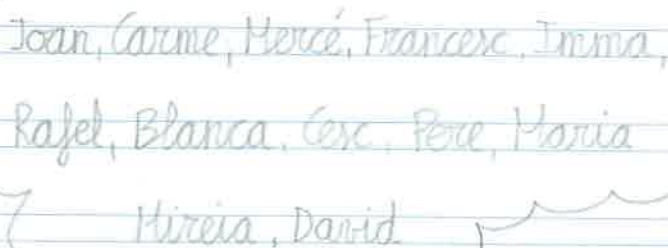 Joan, Carme, Mercé, Francesc, Imma,
Rafel, Blanca, Cesc, Pere, Maria
Mireia, David